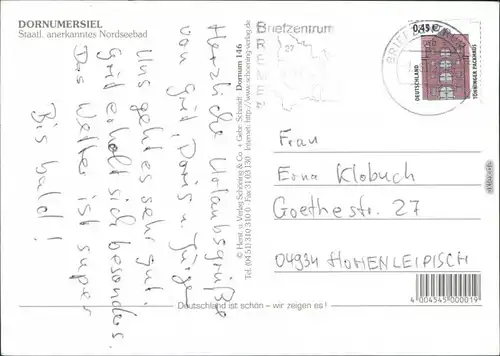 DORNUMERSIEL
Staatl. anerkanntes Nordseebad
Herzliche Urlaubsgrüße
von Grit, Doris u. Jürgen
Uns geht es sehr gut.
Grit erholt sich besonders.
Das Wetter ist super
Bis bald!
© Herst. u. Verlag Schöning & Co. + Gebr. Schmidt · Dornum 146
Tel. (04 51) 310 310 · Fax 31 03 130 · Internet: http://www.schoening-verlag.de
Briefzentrum
27
BRIEFZENTRUM
0,45 €
DEUTSCHLAND
TÖNNINGER PACKHAUS
Frau
Erna Klobuch
Goethestr. 27
04934 HOHENLEIPISCH
Deutschland ist schön – wir zeigen es!
4 004545 000019